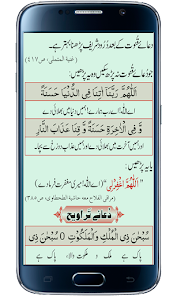 دعائے قنوت کے بعد دُرُود شریف پڑھنا بہتر ہے۔
(غنیۃ المتملی، ص ٤١٧)
جو دعائے قنوت نہ پڑھ سکیں وہ یہ پڑھیں:
اَللّٰهُمَّ رَبَّنَا اٰتِنَا فِي الدُّنْيَا حَسَنَةً
اے اللہ! اے رب ہمارے! ہمیں دنیا میں بھلائی دے
وَّ فِي الْاٰخِرَةِ حَسَنَةً وَّ قِنَا عَذَابَ النَّارِ
اور ہمیں آخرت میں بھلائی دے اور ہمیں عذابِ دوزخ سے بچا۔
یا یہ پڑھیں:
"اَللّٰهُمَّ اغْفِرْ لِيْ" (اے اللہ! میری مغفرت فرما دے)
(مراقی الفلاح معہ حاشیۃ الطحطاوی، ص ٣٨٥)
دعائے تراویح
سُبْحٰنَ ذِي الْمُلْكِ وَ الْمَلَكُوْتِ ۝ سُبْحٰنَ ذِي
پاک ہے ملک و ملکوت والا، پاک ہے